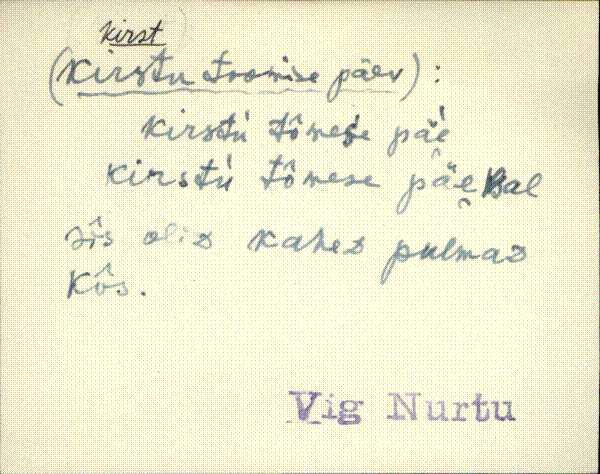 kirst
(kirstu toomise päev):
kirstù tômese päe̬
kirstù tômese päe̬val
sîs oliᴅ kaheᴅ pulmaᴅ
kôs.
Vig Nurtu